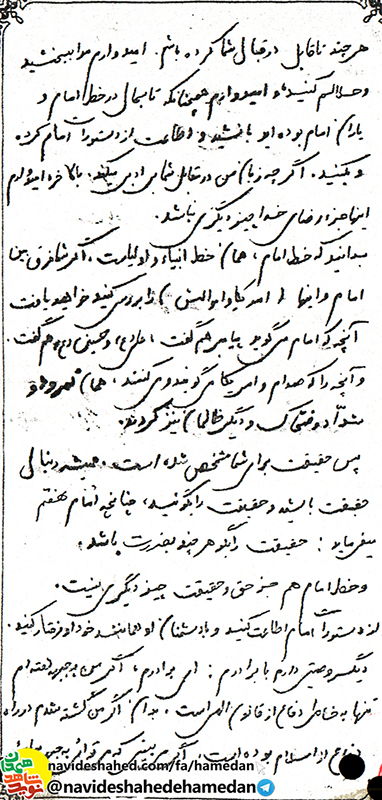 هر چند ناقابل در قبال شما کرده باشم. امیدوارم مرا ببخشید
و حلالم کنید و امیدوارم همچنانکه تا بحال در خط امام و
یاران امام بوده اید باشید و اطاعت از دستورات امام کرده
و بکنید. اگر چه زبان من در مقابل شما بی ادبی میکند. بالاخره امیدوارم
اینها جزء رضای خدا چیز دیگری نباشد.
بدانید که خط امام، همان خط انبیاء و اولیاست. اگر شما فرق بین
امام و اینها (امریکا و ابوالیش) را بررسی کنید خواهید یافت
آنچه که امام می گوید پیامبر هم گفت، علی (ع) و حسین (ع) هم گفت.
و آنچه را که صدام و امریکا می گویند و می کنند. همان نمرود و
شداد و ضحاک و دیگر ظالمان نیز کردند.
پس حقیقت برای شما مشخص شده است. همیشه دنبال
حقیقت باشید و حقیقت را بگوئید، چنانچه امام هفتم
میفرماید: حقیقت را بگو هر چند بضررت باشد.
و خط امام هم جز حق و حقیقت چیز دیگری نیست.
از دستورات امام اطاعت کنید و با دشمنان او همانند خود او رفتار کنید.
دیگر وصیتی دارم با برادرم: ای برادرم، اگر من به جبهه رفته ام
تنها به خاطر دفاع از قانون الهی است. بدان اگر من کشته شدم در راه
دفاع از اسلام بوده است. اگر می بینی که می توانی به جبهه
navideshahed.com/fa/hamedan
@navideshahedehamedan
نوید شاهد همدان